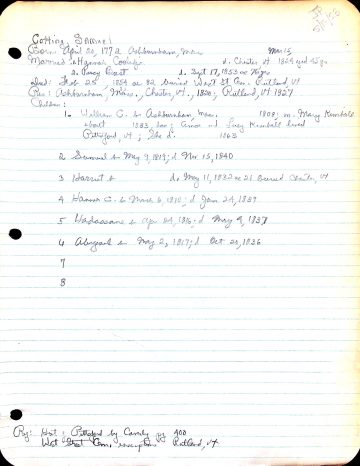 Cotting, Samuel
Born April 20, 1772 Ashburnham, Mass
Married 1. Hannah Cooledge d. Chester Vt 1824 aged 45 yrs
2. Percy Barst d. Sept 17, 1853 ae 76 yrs
Died: Feb 25 1854 ae 82 buried West St Cem. Rutland Vt
Res: Ashburnham, Mass., Chester, Vt., 1800; Rutland, Vt 1827
Children:
1. William C. b Ashburnham, Mass. 1808; m. Mary Kimball
about 1833, dau; Amos and Lucy Kimball lived
Pittsford, Vt; She d. 1863
2 Samuel b May 9, 1819; d Nov 15, 1840
3 Harriet b d. May 11, 1832 ae 21 buried Chester, Vt
4 Hannah C. b March 6, 1810; d Jan 24, 1837
5 Hadassane b Apr 24, 1816; d May 9, 1837
6 Abigail b May 2, 1817; d Oct 20, 1836
7
8
Ref: Hist; Pittsford by Caverly pg 400
West Street Cem, inscriptions Rutland, Vt